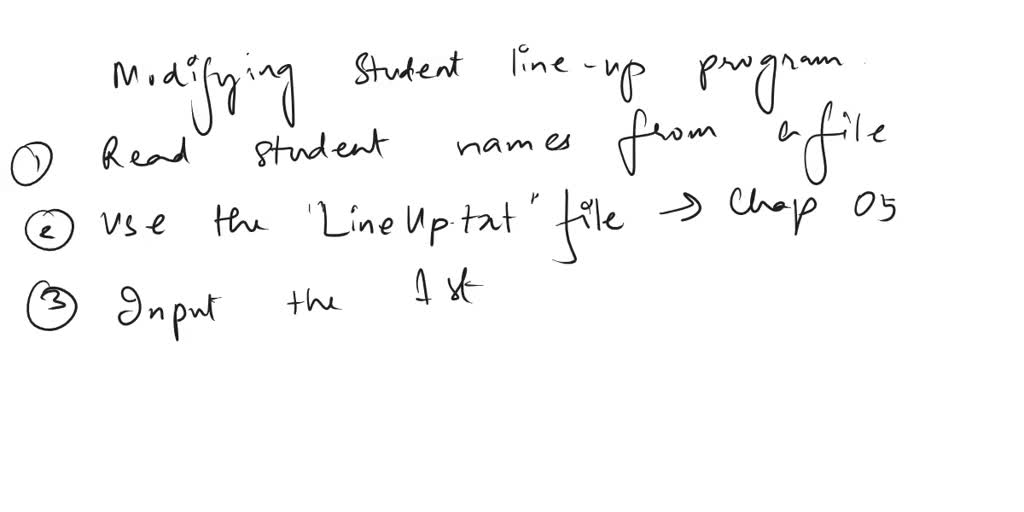 Modifying Student line-up program
① Read student names from a file
② Use the 'LineUp.txt" file → Chap 05
③ Input the 1st